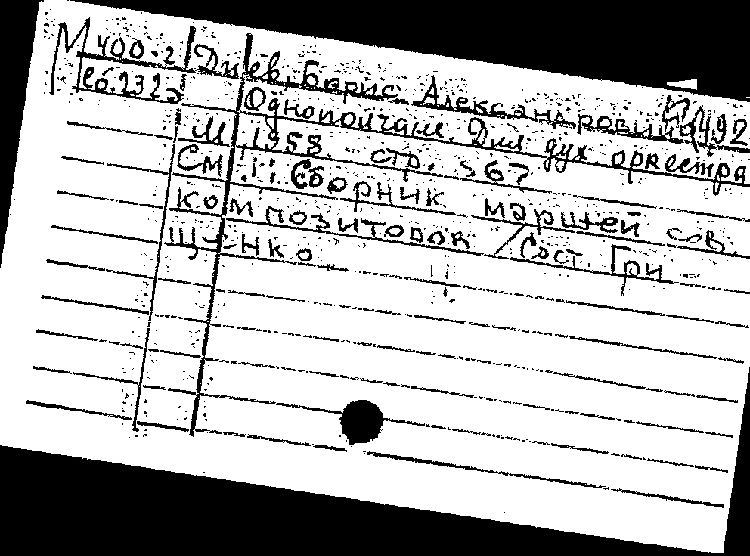 М 400.2 Диев, Борис Александрович 492
Сб.232 Однополчане. Для дух оркестра
М., 1958. стр. 367
См.: Сборник маршей сов.
композиторов / Сост. Гри-
щенко